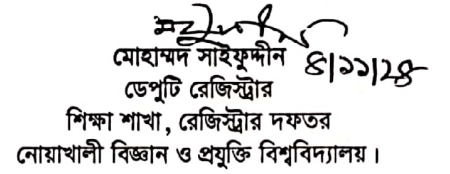 মোহাম্মদ সাইফুদ্দীন ৪/১১/২৪
ডেপুটি রেজিস্ট্রার
শিক্ষা শাখা, রেজিস্ট্রার দফতর
নোয়াখালী বিজ্ঞান ও প্রযুক্তি বিশ্ববিদ্যালয়।